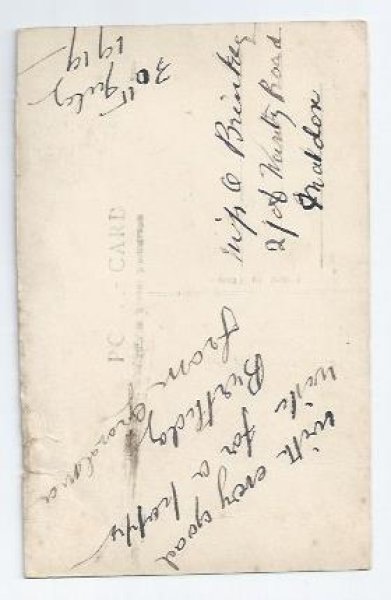 30th July
1919
POST CARD
Miss O Brinkley
2/08 Wantz Road
Maldon
with every good
wish for a happy
Birthday
from Grandma